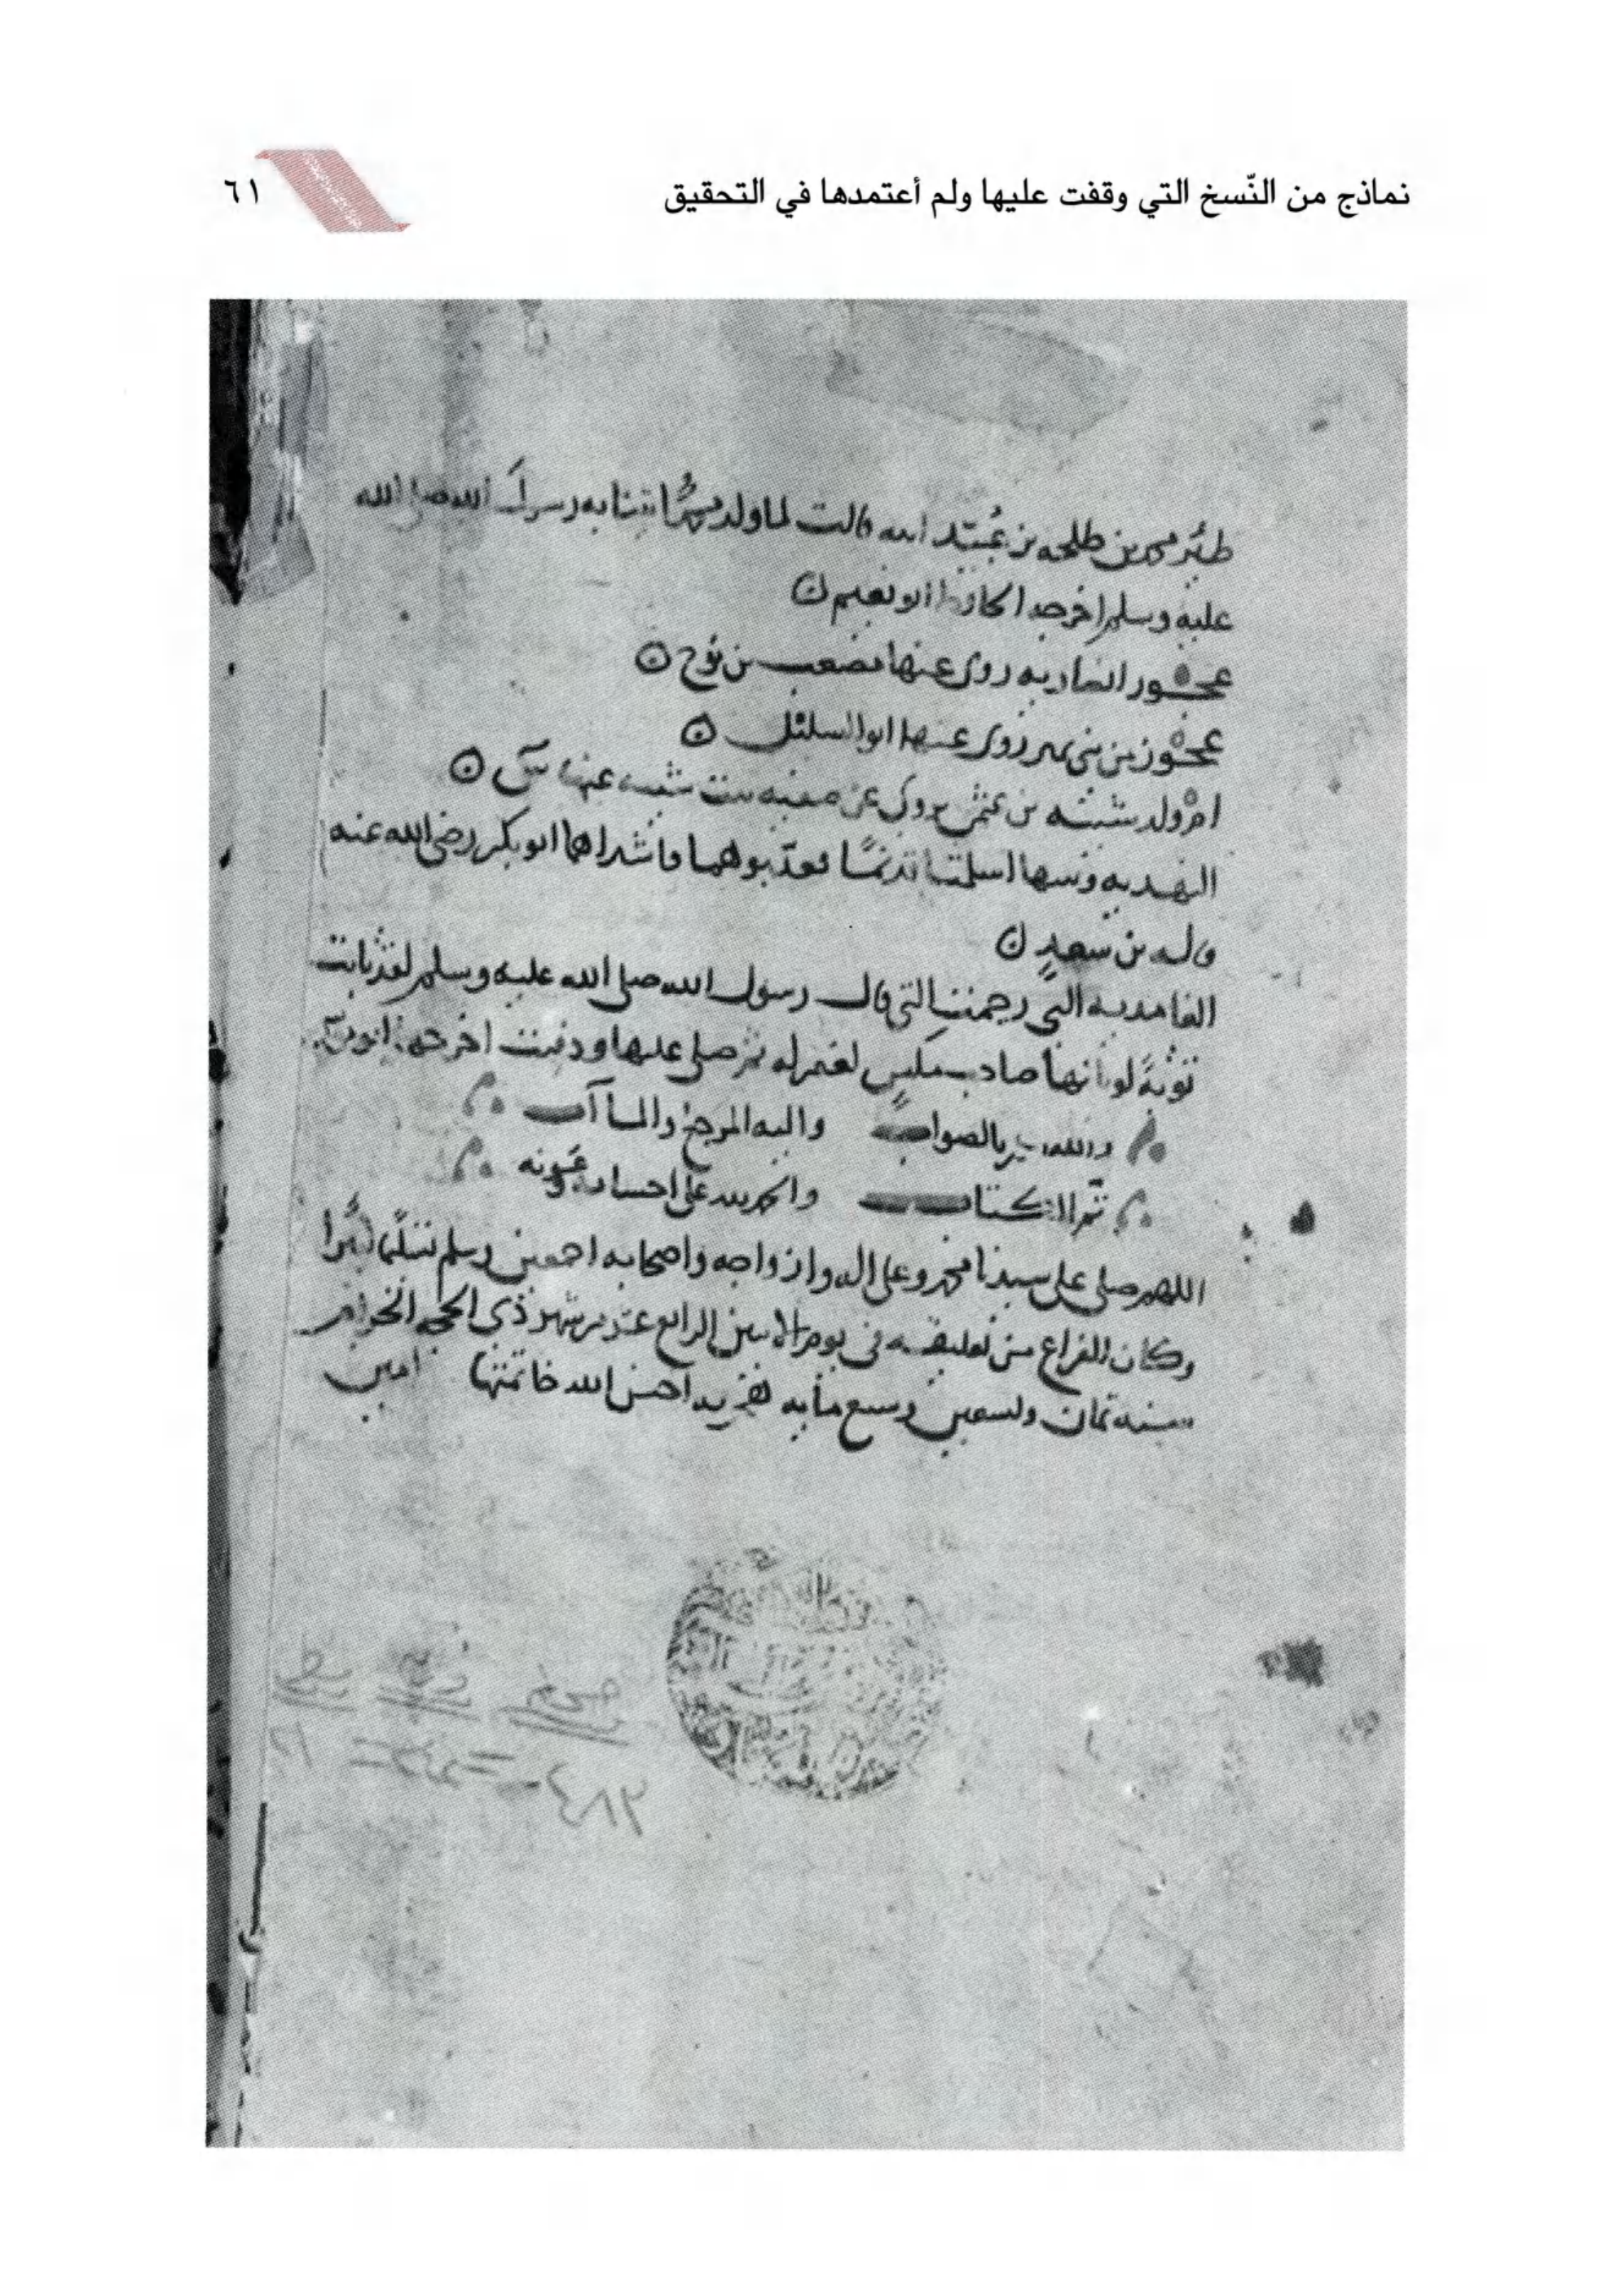 نماذج من النّسخ التي وقفت عليها ولم أعتمدها في التحقيق
٦١
طير محمد بن طلحه بن عبيد الله قالت لما ولد محمدا اتينا به رسول الله صلى الله
عليه وسلم اخرجه الحافظ ابو نعيم
عجوز انصاريه روى عنها مصعب بن نوح
عجوز من بني نمير روى عنها ابو السليل
ام ولد شيبه بن عثمن يروى عن صفيه بنت شيبه عنها س
النهديه وبنتها اسلمتا قديمًا فعذبوهما فاشتراهما ابو بكر رضي الله عنه
قاله بن سعدٍ
الغامديه التي رجمت التي قال رسول الله صلى الله عليه وسلم لقد تابت
توبةً لو تابها صاحب مكسٍ لغفر له ثم صلى عليها ودفنت اخرجه
والله بالصواب واليه المرجع والمآب
تم الكتاب والحمد لله على احسانه وعونه
اللهم صلى على سيدنا محمد وعلى اله وازواجه واصحابه اجمعين وسلم تسليما
وكان الفراغ من تعليقه في يوم الاثنين الرابع عشر من شهر ذي الحجه الحرام
سنه ثمان وتسعين وسبع مايه احسن الله خاتمتها امين